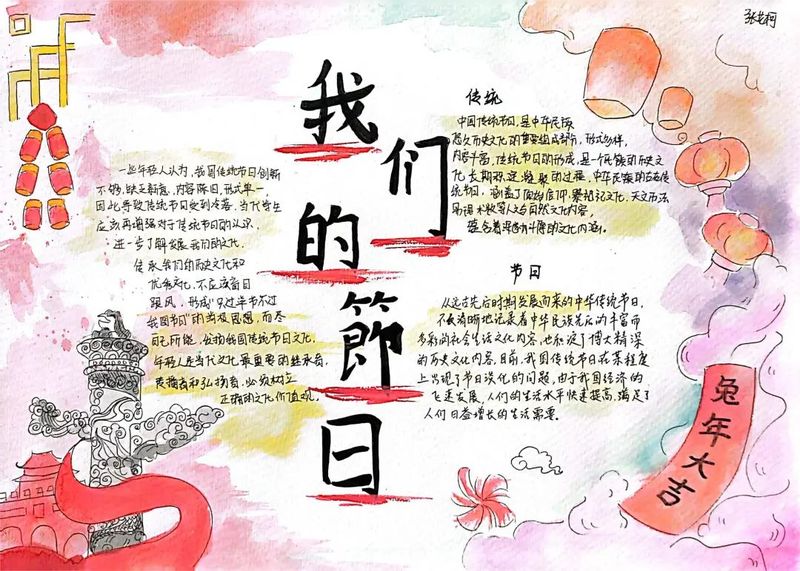 张艺柯
我们的節日
传统
中国传统节日,是中华民族
悠久历史文化的重要组成部分,形式多样,
内容丰富,传统节日的形成,是一个民族的历史文
化长期积淀凝聚的过程,中华民族的古老传
统节日,涵盖了原始信仰、祭祀文化、天文历法
易理术数等人文与自然文化内容,
蕴含着深邃丰厚的文化内涵。
节日
从远古先启时期发展而来的中华传统节日,
不仅清晰地记录着中华民族先后的丰富而
多彩的社会生活文化内容,也积淀了博大精深
的历史文化内容。目前,我国传统节日在某程度
上出现了节日淡化的问题,由于我国经济的
飞速发展,人们的生活水平快速提高,满足了
人们日益增长的生活需要。
一些年轻人认为,我国传统节日创新
不够,缺乏新意,内容陈旧,形式单一,
因此导致传统节日受到冷落,当代学生
应该再增强对于传统节日的认识,
进一步了解发展我们的文化,
传承我们的历史文化和
优秀文化,不应该盲目
跟风,形成“只过洋节不过
我国节日”的消极思想,而尽
自己所能,发扬我国传统节日文化。
年轻人是当代文化最重要的继承者、
发扬者和弘扬者,必须树立
正确的文化价值观。
兔年大吉